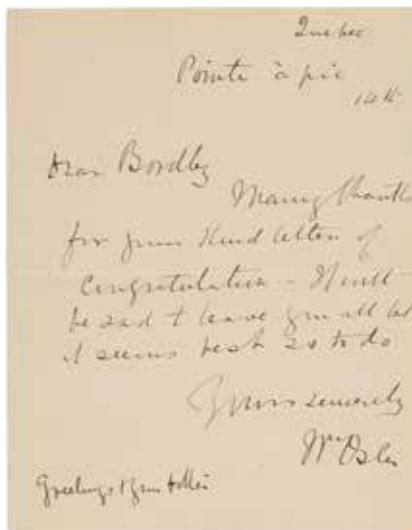 Quebec
Pointe à pic
14th
Dear Bordley
Many thanks
for your kind letter of
congratulation - It will
be sad to leave you all but
it seems best so to do
Yours sincerely
Wm Osler
Greetings to your